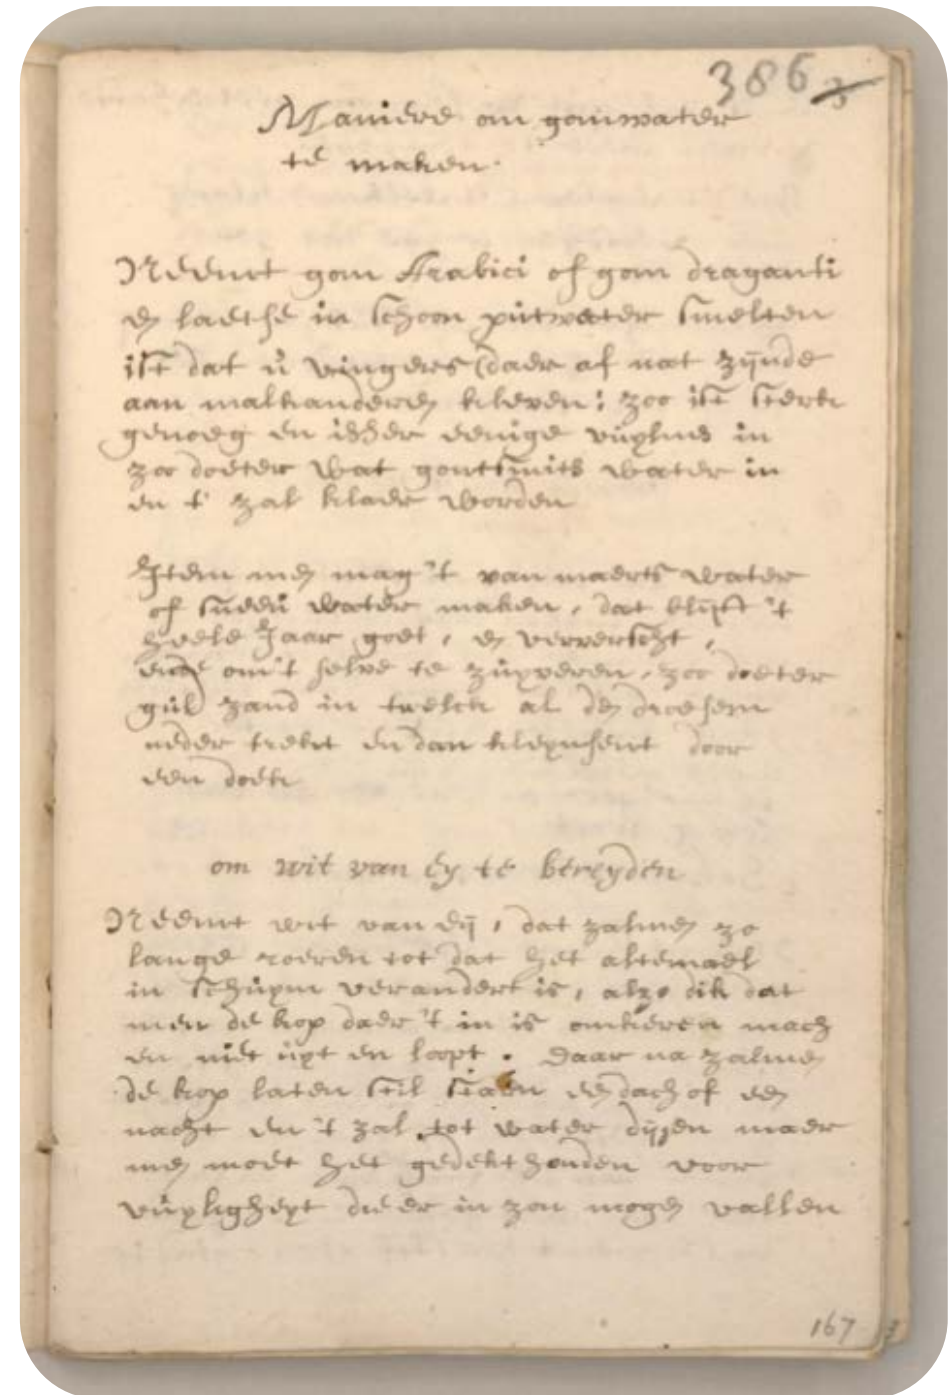 386 3
Maniere om gomwater
te maken.
Neemt gom Arabici of gom draganti
en laetse in schoon putwater smelten
ist dat u vingers (daer af nat zijnde
aan malkanderen kleven: zoo ist sterk
genoeg en isser eenige vuylnis in
zoo doeter wat goutsmits water in
en t' zal klaer worden
Item men mag 't van maerts water
of sneeu water maken, dat blijft 't
heele Jaar goet, en ververscht,
ende om't selve te zuyveren, zoo doeter
gul zand in twelck al den droesem
neder trekt en dan kleynsent door
een doek
om wit van Ey te bereyden
Neemt wit van eij, dat zalmen zo
lange roeren tot dat het altemael
in schuym verandert is, alzo dik dat
men de kop daer 't in is omkeren mach
en niet uyt en loopt. Daar na zalmen
de kop laten stil staen een dach of een
nacht en 't zal tot water dijen maer
men moet het gedekt houden voor
vuyligheyt die er in zou mogen vallen
167